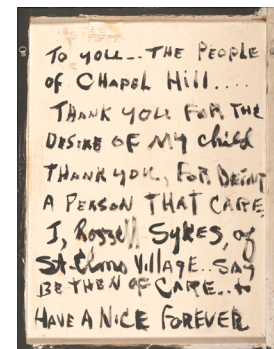 TO YOU... THE PEOPLE
OF CHAPEL HILL....
THANK YOU FOR THE
DESIRE OF MY child
THANK YOU, FOR BEING
A PERSON THAT CARE,
I, Rozzell SYKES, of
St. Elmo Village.. SAY
BE THEN OF CARE.. to
HAVE A NICE FOREVER